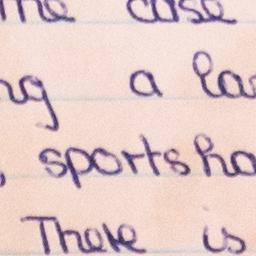 The case
ng a la
, sportsha
There is